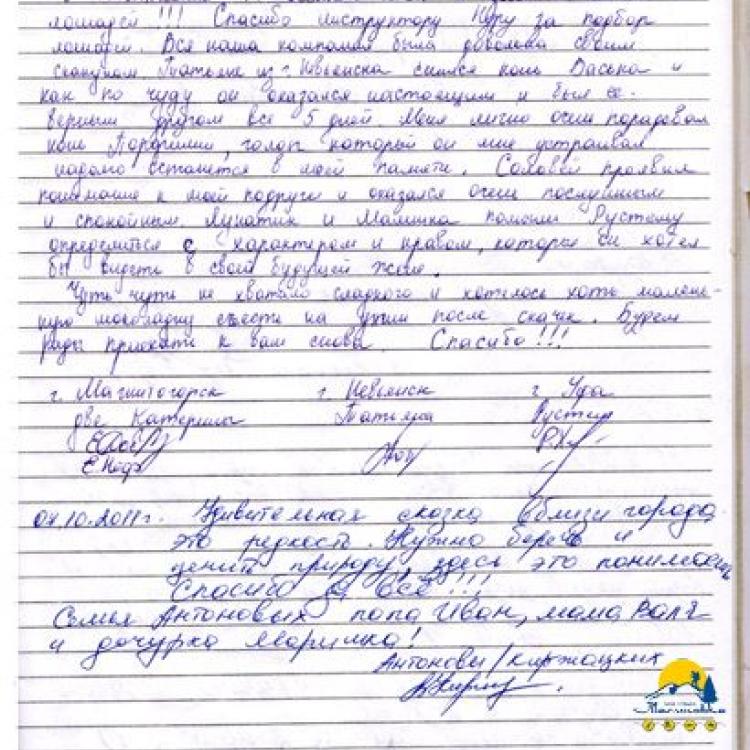 лошадей !!! Спасибо инструктору Нуру за подбор
лошадей. Вся наша компания была довольна своим
скакуном. Татьяне из г. Невьянска снился конь Васька и
как по чуду он оказался настоящим и был ее
верным другом все 5 дней. Меня лично очень порадовал
конь Порфирий, голоп который он мне устраивал
надолго останется в моей памяти. Соловей проявил
понимание к моей подруге и оказался очень послушным
и спокойным. Лунатик и Малышка помогли Рустему
определиться с характером и нравом, которые он хотел
бы видеть в своей будущей жене.
Чуть чуть не хватало сладкого и хотелось хоть малень-
кую шоколадку съесть на ужин после скачек. Будем
рады приехать к вам снова. Спасибо!!!
г. Магнитогорск г. Невьянск г. Уфа
две Катерины Татьяна Рустем
04.10.2011г. Удивительная сказка вблизи города
это редкость. Нужно беречь и
ценить природу, здесь это понимаешь
Спасибо за всё!!!
Семья Антоновых папа Иван, мама Валя
и дочурка Маришка!
Антоновы/Киржацких